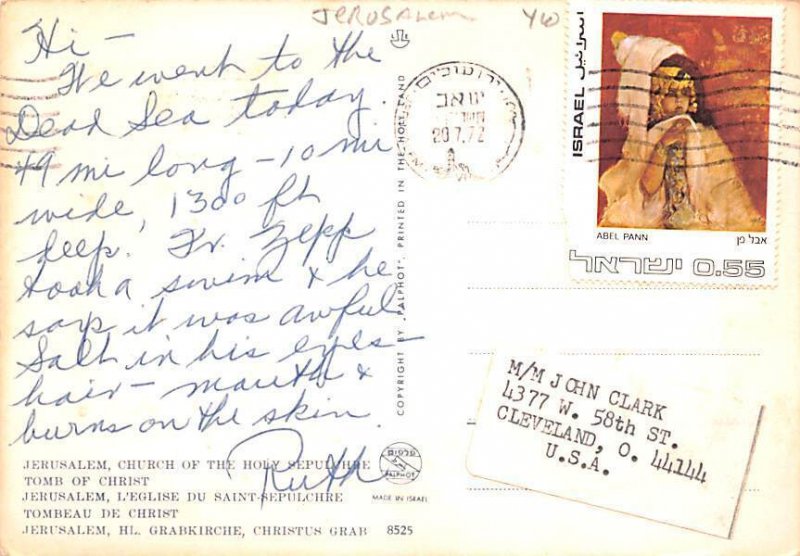 JERUSALEM YW
Hi -
We went to the
Dead Sea today.
49 mi long - 10 mi
wide, 1300 ft
deep. Fr. Zepp
took a swim & he
says it was awful
Salt in his eyes -
hair - mouth &
burns on the skin.
Ruth
JERUSALEM, CHURCH OF THE HOLY SEPULCHRE
TOMB OF CHRIST
JERUSALEM, L'EGLISE DU SAINT-SEPULCHRE
TOMBEAU DE CHRIST
JERUSALEM, HL. GRABKIRCHE, CHRISTUS GRAB 8525
COPYRIGHT BY "PALPHOT" PRINTED IN THE HOLY LAND
פלפוט
PALPHOT
MADE IN ISRAEL
ירושלים
20.7.72
ISRAEL اسرائيل
ABEL PANN אבל פן
ישראל 0.55
M/M JOHN CLARK
4377 W. 58th ST.
CLEVELAND, O. 44144
U.S.A.